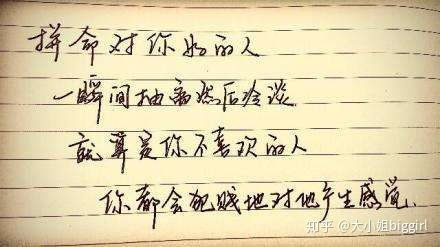 拼命对你好的人
一瞬间抽离然后冷淡
就算是你不喜欢的人
你都会犯贱地对他产生感觉.
知乎 @大小姐biggirl